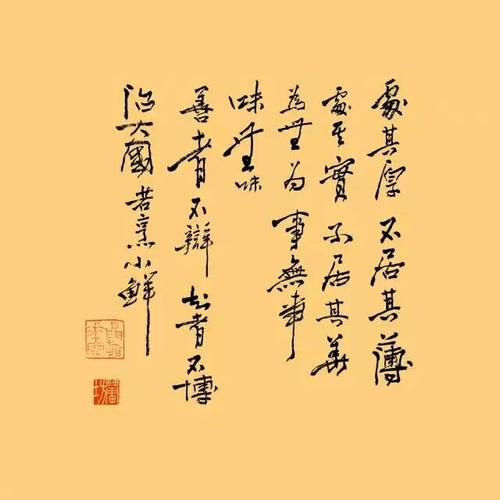 處其厚 不居其薄
處其實 不居其華
為無為 事無事
味無味
善者不辯 知者不博
治大國若烹小鮮